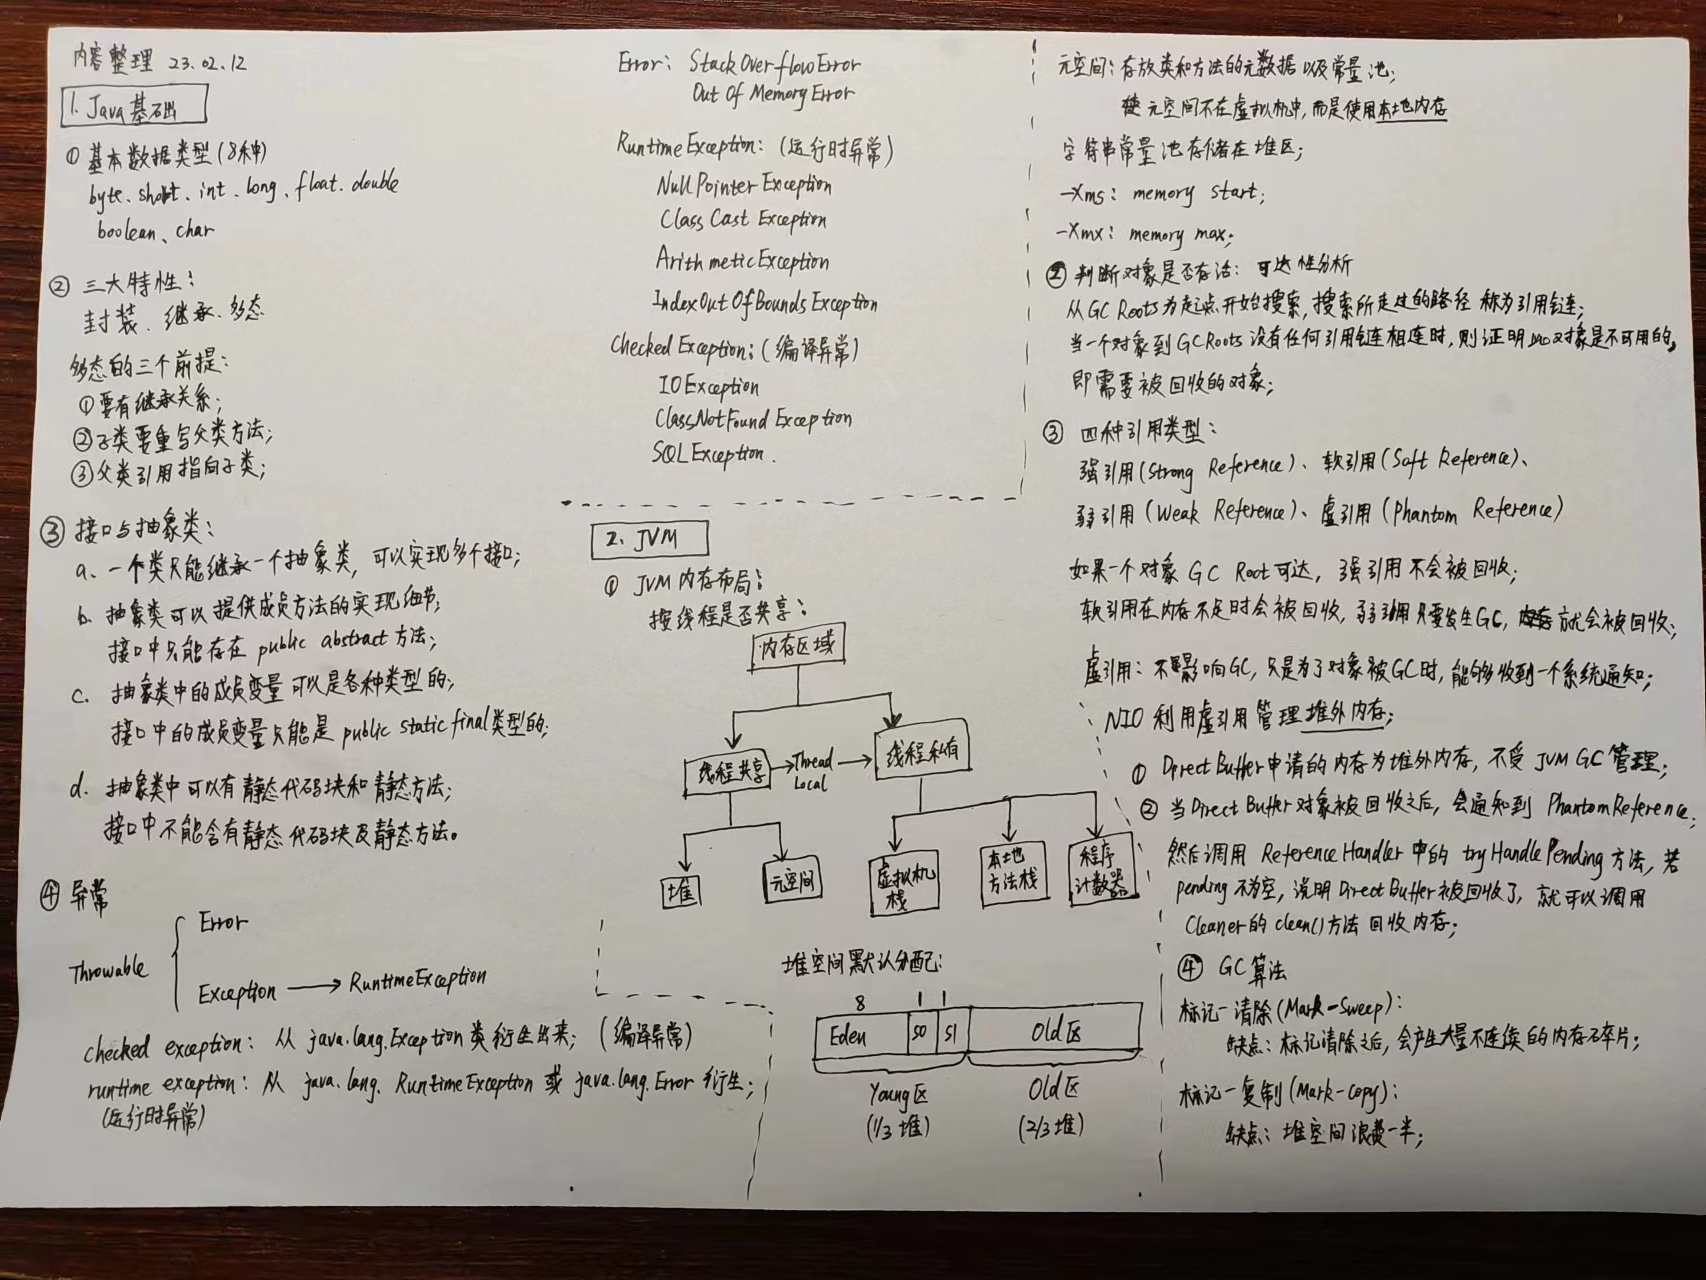 内容整理 23.02.12
1. Java基础
① 基本数据类型(8种)
byte、short、int、long、float、double
boolean、char
② 三大特性:
封装、继承、多态
多态的三个前提:
①要有继承关系;
②子类要重写父类方法;
③父类引用指向子类;
③ 接口与抽象类:
a、一个类只能继承一个抽象类, 可以实现多个接口;
b、抽象类可以提供成员方法的实现细节;
接口中只能存在 public abstract 方法;
c. 抽象类中的成员变量可以是各种类型的;
接口中的成员变量只能是 public static final类型的;
d. 抽象类中可以有静态代码块和静态方法;
接口中不能含有静态代码块及静态方法。
④ 异常
Throwable
Error
Exception → RuntimeException
checked exception: 从 java.lang.Exception 类衍生出来; (编译异常)
runtime exception: 从 java.lang.RuntimeException 或 java.lang.Error 衍生;
(运行时异常)
Error: StackOverflowError
Out Of Memory Error
RuntimeException: (运行时异常)
NullPointerException
Class Cast Exception
ArithmeticException
IndexOutOfBoundsException
Checked Exception: (编译异常)
IOException
ClassNotFoundException
SQLException.
2. JVM
① JVM内存布局:
按线程是否共享:
内存区域
线程共享 → Thread Local → 线程私有
堆
元空间
虚拟机栈
本地方法栈
程序计数器
堆空间默认分配:
8 1 1
Eden S0 S1 Old区
Young区 Old区
(1/3堆) (2/3堆)
元空间: 存放类和方法的元数据以及常量池;
元空间不在虚拟机中, 而是使用本地内存
字符串常量池存储在堆区;
-Xms: memory start;
-Xmx: memory max;
② 判断对象是否存活: 可达性分析
从GC Roots为起点开始搜索, 搜索所走过的路径称为引用链;
当一个对象到GC Roots没有任何引用链相连时, 则证明此对象是不可用的,
即需要被回收的对象;
③ 四种引用类型:
强引用(Strong Reference)、软引用(Soft Reference)、
弱引用(Weak Reference)、虚引用(Phantom Reference)
如果一个对象 GC Root可达, 强引用不会被回收;
软引用在内存不足时会被回收, 弱引用只要发生GC, 就会被回收;
虚引用: 不影响GC, 只是为了对象被GC时, 能够收到一个系统通知;
NIO 利用虚引用管理堆外内存;
① DirectBuffer申请的内存为堆外内存, 不受 JVM GC管理;
② 当DirectBuffer对象被回收之后, 会通知到 PhantomReference,
然后调用 ReferenceHandler中的 tryHandlePending方法, 若
pending 不为空, 说明DirectBuffer被回收了, 就可以调用
Cleaner的clean()方法回收内存;
④ GC算法
标记-清除(Mark-Sweep):
缺点: 标记清除之后, 会产生大量不连续的内存碎片;
标记-复制(Mark-copy):
缺点: 堆空间浪费一半;